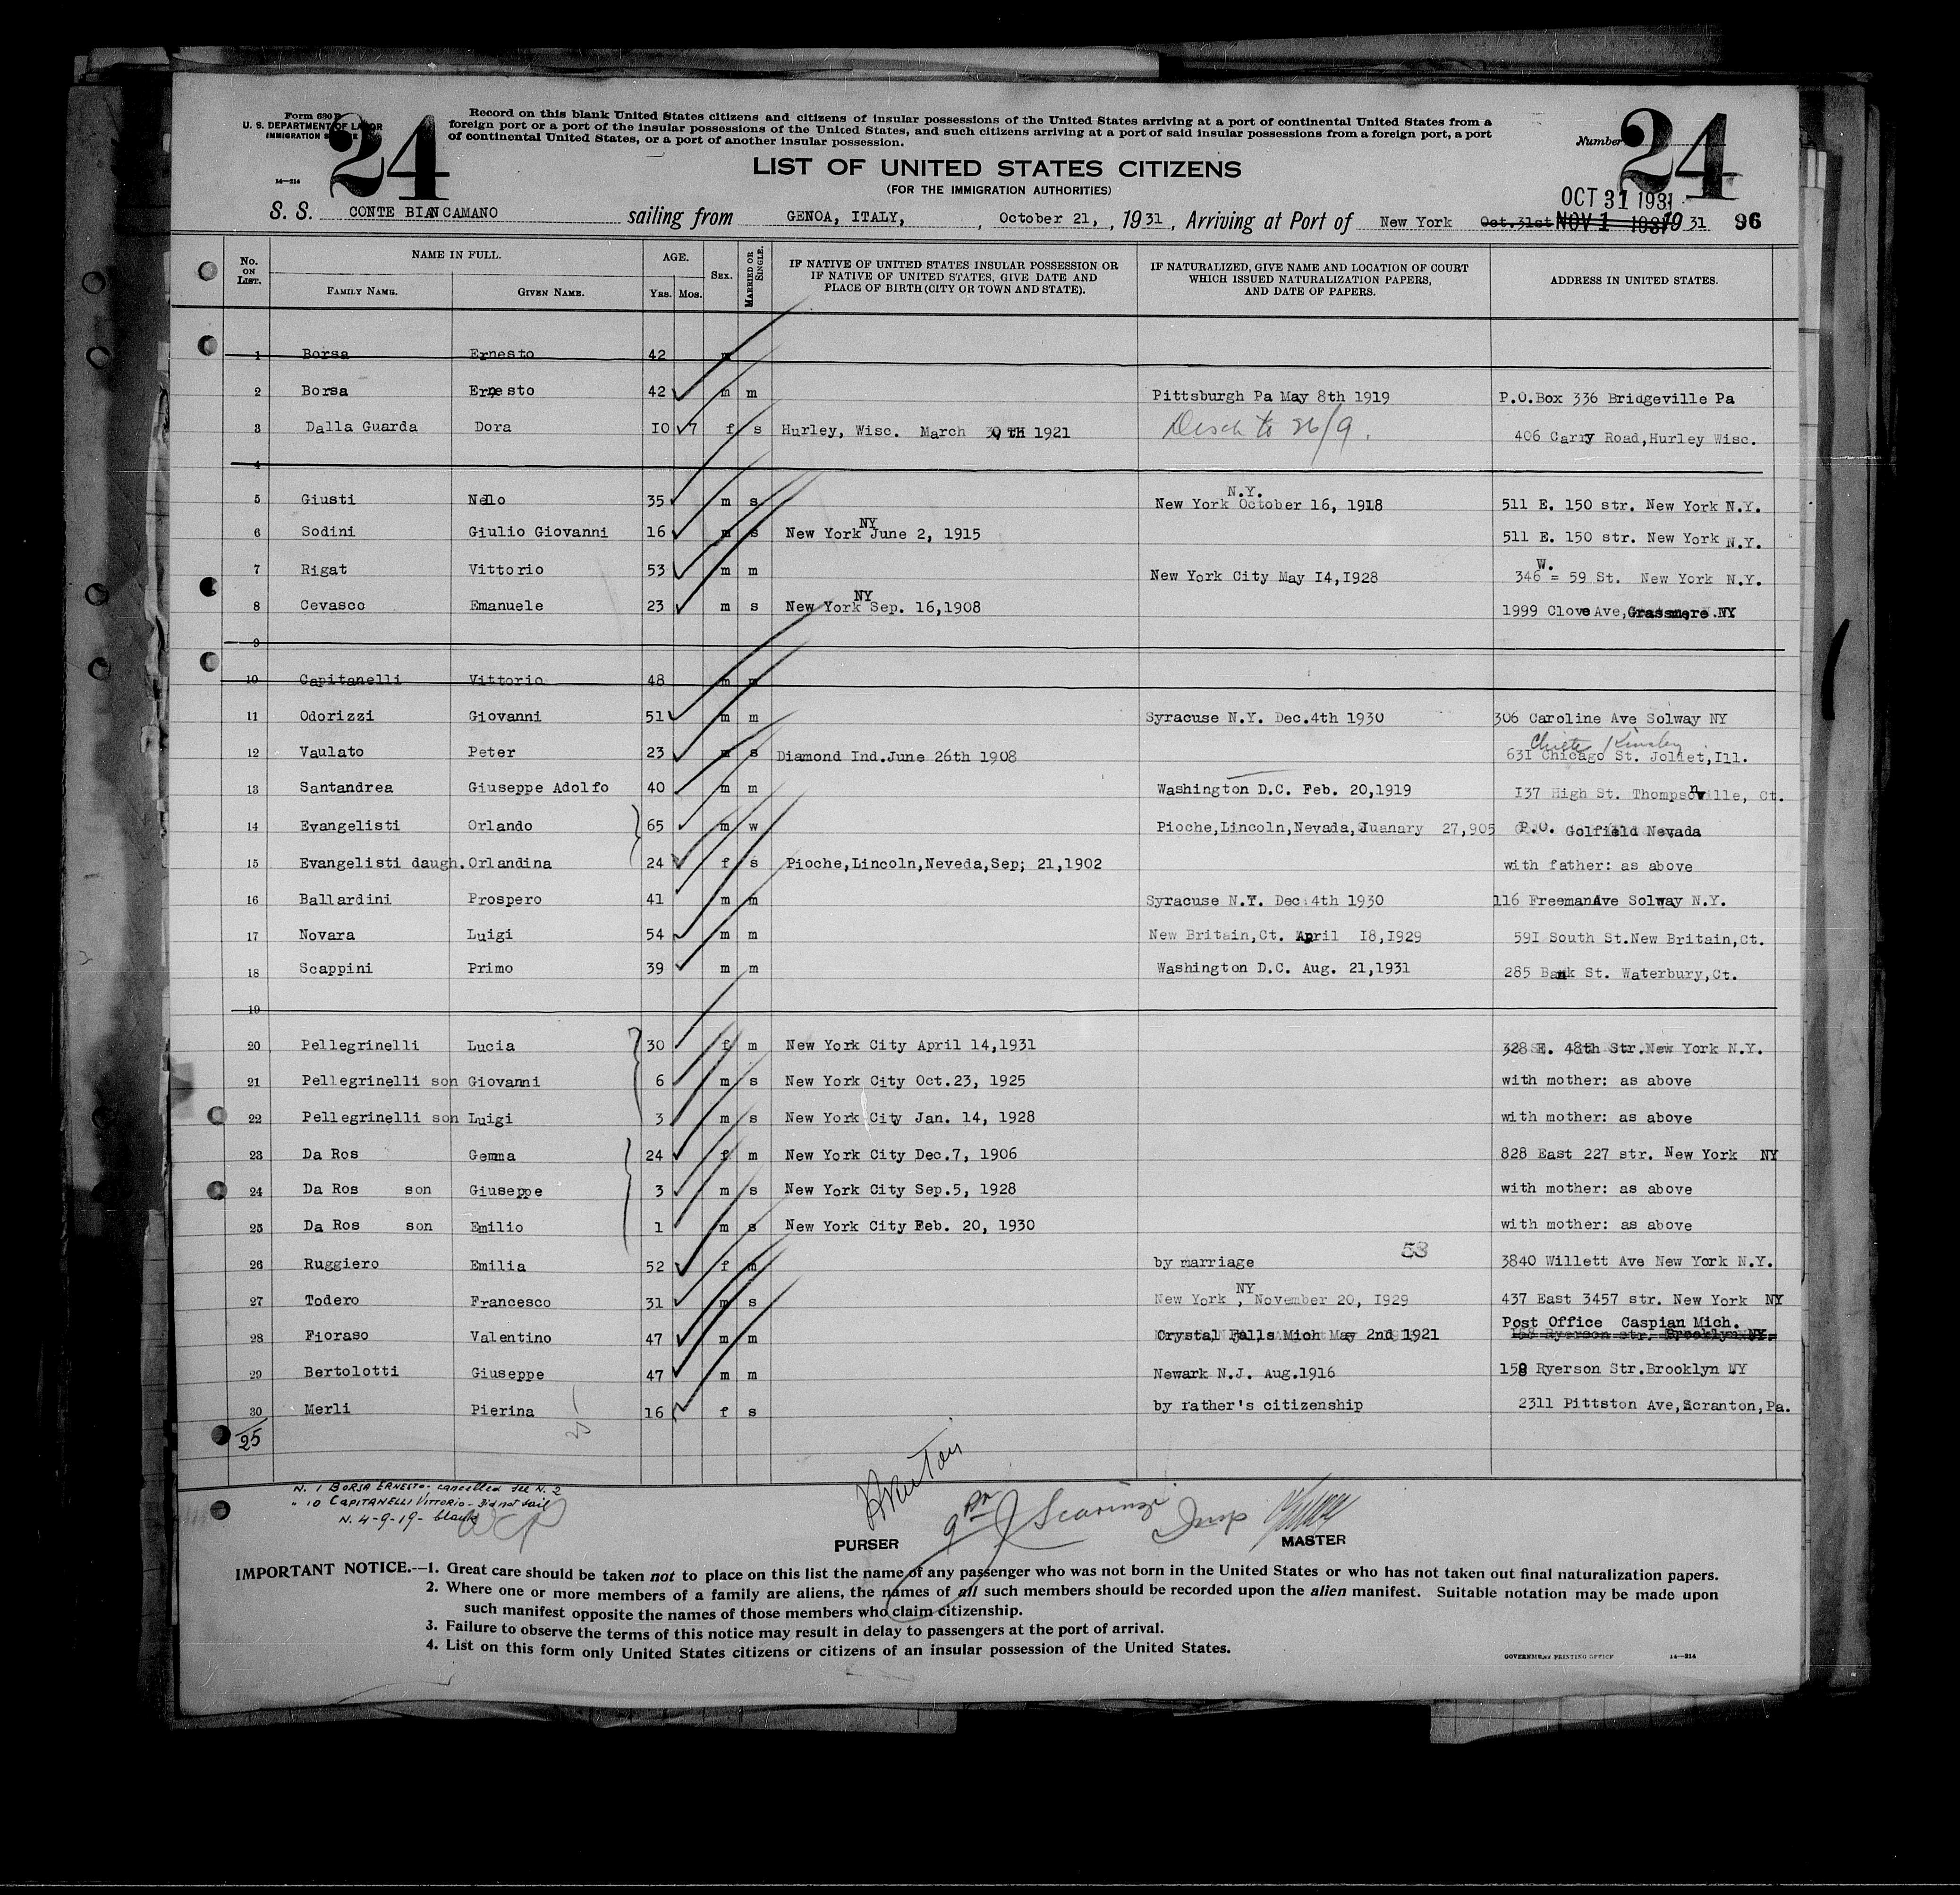 Form 630 B
U. S. DEPARTMENT OF LABOR
IMMIGRATION SERVICE
24
14—214
Record on this blank United States citizens and citizens of insular possessions of the United States arriving at a port of continental United States from a
foreign port or a port of the insular possessions of the United States, and such citizens arriving at a port of said insular possessions from a foreign port, a port
of continental United States, or a port of another insular possession.
Number 24
LIST OF UNITED STATES CITIZENS
(FOR THE IMMIGRATION AUTHORITIES)
OCT 31 1931
S. S. CONTE BIANCAMANO sailing from GENOA, ITALY, , October 21, , 1931, Arriving at Port of New York Oct.31st NOV 1 1931 1931 96
No. ON LIST. NAME IN FULL. FAMILY NAME. GIVEN NAME. AGE. YRS. MOS. SEX. MARRIED OR SINGLE. IF NATIVE OF UNITED STATES INSULAR POSSESSION OR IF NATIVE OF UNITED STATES, GIVE DATE AND PLACE OF BIRTH (CITY OR TOWN AND STATE). IF NATURALIZED, GIVE NAME AND LOCATION OF COURT WHICH ISSUED NATURALIZATION PAPERS, AND DATE OF PAPERS. ADDRESS IN UNITED STATES.
1 Borsa Ernesto 42 m
2 Borsa Ernesto 42 m m Pittsburgh Pa May 8th 1919 P.O.Box 336 Bridgeville Pa
3 Dalla Guarda Dora 10 7 f s Hurley, Wisc. March 30 TH 1921 406 Carry Road,Hurley Wisc.
4
5 Giusti Nello 35 m s New York N.Y. October 16, 1918 511 E. 150 str. New York N.Y.
6 Sodini Giulio Giovanni 16 m s New York NY June 2, 1915 511 E. 150 str. New York N.Y.
7 Rigat Vittorio 53 m m New York City May 14,1928 346 W. = 59 St. New York N.Y.
8 Cevasco Emanuele 23 m s New York NY Sep. 16,1908 1999 Clove Ave,Grassmere NY
9
10 Capitanelli Vittorio 48 m m
11 Odorizzi Giovanni 51 m m Syracuse N.Y. Dec.4th 1930 306 Caroline Ave Solway NY
12 Vaulato Peter 23 m s Diamond Ind.June 26th 1908 631 Chicago St. Joldet,Ill.
13 Santandrea Giuseppe Adolfo 40 m m Washington D.C. Feb. 20,1919 137 High St. Thompsonville, Ct.
14 Evangelisti Orlando 65 m w Pioche,Lincoln,Nevada,Juanary 27,905 P.O. Golfield Nevada
15 Evangelisti daugh. Orlandina 24 f s Pioche,Lincoln,Neveda,Sep; 21,1902 with father: as above
16 Ballardini Prospero 41 m m Syracuse N.Y. Dec.4th 1930 116 Freeman Ave Solway N.Y.
17 Novara Luigi 54 m m New Britain,Ct. April 18,1929 591 South St.New Britain,Ct.
18 Scappini Primo 39 m m Washington D.C. Aug. 21,1931 285 Bank St. Waterbury,Ct.
19
20 Pellegrinelli Lucia 30 f m New York City April 14,1931 328 E. 48th Str.New York N.Y.
21 Pellegrinelli son Giovanni 6 m s New York City Oct.23, 1925 with mother: as above
22 Pellegrinelli son Luigi 3 m s New York City Jan. 14, 1928 with mother: as above
23 Da Ros Gemma 24 f m New York City Dec.7, 1906 828 East 227 str. New York NY
24 Da Ros son Giuseppe 3 m s New York City Sep.5, 1928 with mother: as above
25 Da Ros son Emilio 1 m s New York City Feb. 20, 1930 with mother: as above
26 Ruggiero Emilia 52 f m by marriage 53 3840 Willett Ave New York N.Y.
27 Todero Francesco 31 m s New York NY, November 20, 1929 437 East 3457 str. New York NY
28 Fioraso Valentino 47 m m Crystal Falls Mich May 2nd 1921 Post Office Caspian Mich.
29 Bertolotti Giuseppe 47 m m Newark N.J. Aug.1916 158 Ryerson Str.Brooklyn NY
30 Merli Pierina 16 f s by rather's citizenship 2311 Pittston Ave,Scranton,Pa.
25
N. 1 BORSA ERNESTO - cancelled see N. 2
" 10 CAPITANELLI VITTORIO - did not sail
N. 4-9-19- blank
PURSER
MASTER
IMPORTANT NOTICE.—1. Great care should be taken not to place on this list the name of any passenger who was not born in the United States or who has not taken out final naturalization papers.
2. Where one or more members of a family are aliens, the names of all such members should be recorded upon the alien manifest. Suitable notation may be made upon
such manifest opposite the names of those members who claim citizenship.
3. Failure to observe the terms of this notice may result in delay to passengers at the port of arrival.
4. List on this form only United States citizens or citizens of an insular possession of the United States.
GOVERNMENT PRINTING OFFICE 14—214